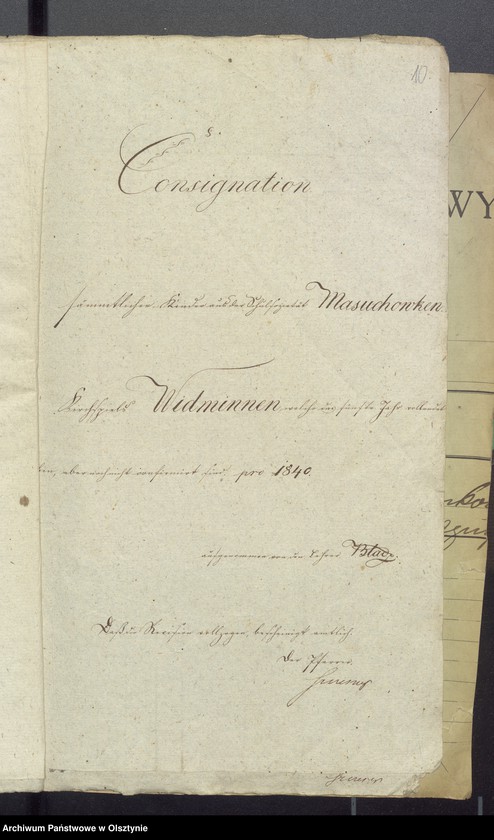 10.
Consignation
sämmtlicher Kinder aus der Schulsocietät Masuchowken
Kirchspiels Widminnen, welche das fünfte Jahr vollendet
ten, aber noch nicht confirmirt sind, pro 1840.
aufgenommen von dem Lehrer
Daß die Revision vollzogen, bescheinigt amtlich.
Der Pfarrer
WY
Archiwum Państwowe w Olsztynie